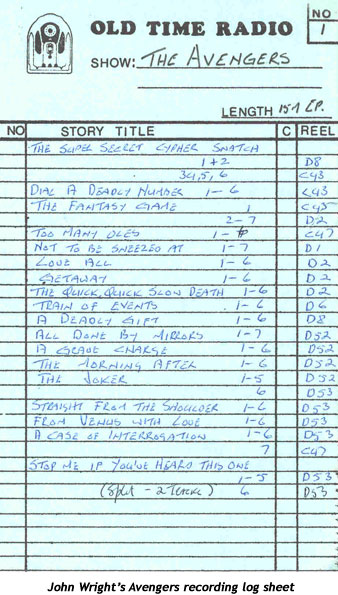 OLD TIME RADIO
NO
1
SHOW: THE AVENGERS
LENGTH 151 EP.
NO STORY TITLE C REEL
THE SUPER SECRET CYPHER SNATCH
1+2 D8
3,4,5,6 C43
DIAL A DEADLY NUMBER 1-6 C43
THE FANTASY GAME 1 C45
2-7 D2
TOO MANY OLES 1- C47
NOT TO BE SNEEZED AT 1-7 D1
LOVE ALL 1-6 D2
GETAWAY 1-6 D2
THE QUICK, QUICK SLOW DEATH 1-6 D2
TRAIN OF EVENTS 1-6 D6
A DEADLY GIFT 1-6 D8
ALL DONE BY MIRRORS 1-7 D52
A GRAVE CHARGE 1-6 D52
THE MORNING AFTER 1-6 D52
THE JOKER 1-5 D52
6 D53
STRAIGHT FROM THE SHOULDER 1-6 D53
FROM VENUS WITH LOVE 1-6 D53
A CASE OF INTERROGATION 1-6 D53
7 C47
STOP ME IF YOU'VE HEARD THIS ONE
1-5 D53
(Split - 2 ) 6 D53
John Wright's Avengers recording log sheet